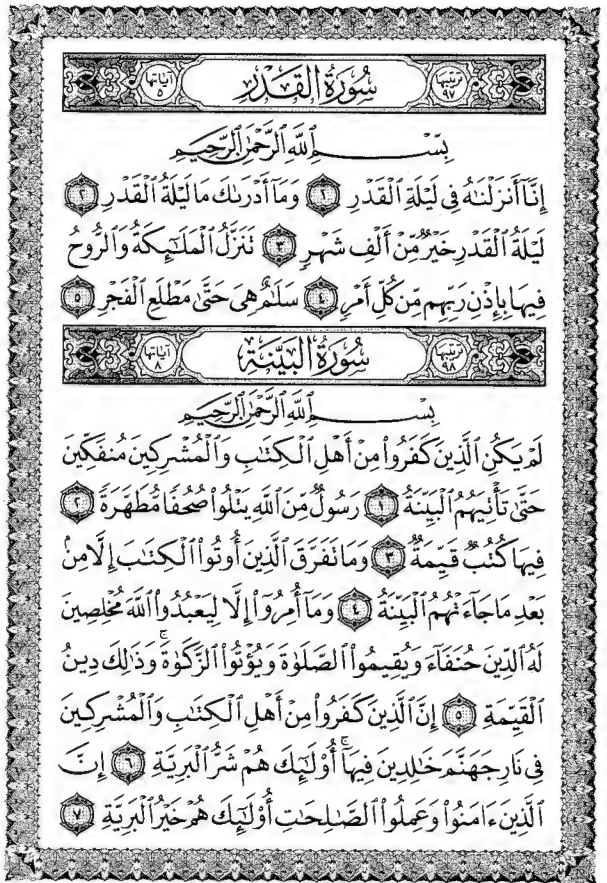 ترتيبها ٩٧ سُورَةُ الْقَدْرِ آياتها ٥
بِسْمِ ٱللَّهِ ٱلرَّحْمَٰنِ ٱلرَّحِيمِ
إِنَّآ أَنزَلْنَٰهُ فِى لَيْلَةِ ٱلْقَدْرِ ١ وَمَآ أَدْرَىٰكَ مَا لَيْلَةُ ٱلْقَدْرِ ٢
لَيْلَةُ ٱلْقَدْرِ خَيْرٌ مِّنْ أَلْفِ شَهْرٍ ٣ تَنَزَّلُ ٱلْمَلَٰٓئِكَةُ وَٱلرُّوحُ
فِيهَا بِإِذْنِ رَبِّهِم مِّن كُلِّ أَمْرٍ ٤ سَلَٰمٌ هِىَ حَتَّىٰ مَطْلَعِ ٱلْفَجْرِ ٥
ترتيبها ٩٨ سُورَةُ الْبَيِّنَةِ آياتها ٨
بِسْمِ ٱللَّهِ ٱلرَّحْمَٰنِ ٱلرَّحِيمِ
لَمْ يَكُنِ ٱلَّذِينَ كَفَرُوا۟ مِنْ أَهْلِ ٱلْكِتَٰبِ وَٱلْمُشْرِكِينَ مُنفَكِّينَ
حَتَّىٰ تَأْتِيَهُمُ ٱلْبَيِّنَةُ ١ رَسُولٌ مِّنَ ٱللَّهِ يَتْلُوا۟ صُحُفًا مُّطَهَّرَةً ٢
فِيهَا كُتُبٌ قَيِّمَةٌ ٣ وَمَا تَفَرَّقَ ٱلَّذِينَ أُوتُوا۟ ٱلْكِتَٰبَ إِلَّا مِنۢ
بَعْدِ مَا جَآءَتْهُمُ ٱلْبَيِّنَةُ ٤ وَمَآ أُمِرُوٓا۟ إِلَّا لِيَعْبُدُوا۟ ٱللَّهَ مُخْلِصِينَ
لَهُ ٱلدِّينَ حُنَفَآءَ وَيُقِيمُوا۟ ٱلصَّلَوٰةَ وَيُؤْتُوا۟ ٱلزَّكَوٰةَ ۚ وَذَٰلِكَ دِينُ
ٱلْقَيِّمَةِ ٥ إِنَّ ٱلَّذِينَ كَفَرُوا۟ مِنْ أَهْلِ ٱلْكِتَٰبِ وَٱلْمُشْرِكِينَ
فِى نَارِ جَهَنَّمَ خَٰلِدِينَ فِيهَآ ۚ أُو۟لَٰٓئِكَ هُمْ شَرُّ ٱلْبَرِيَّةِ ٦ إِنَّ
ٱلَّذِينَ ءَامَنُوا۟ وَعَمِلُوا۟ ٱلصَّٰلِحَٰتِ أُو۟لَٰٓئِكَ هُمْ خَيْرُ ٱلْبَرِيَّةِ ٧